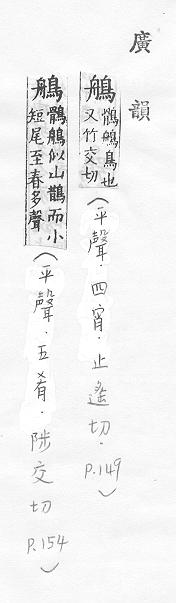 廣韻
鵃 鶻鵃鳥也
又竹交切
(平聲．四宵．止遙切．P.149)
鵃 鶻鵃似山鵲而小
短尾至春多聲
(平聲．五肴．陟交切 P.154)